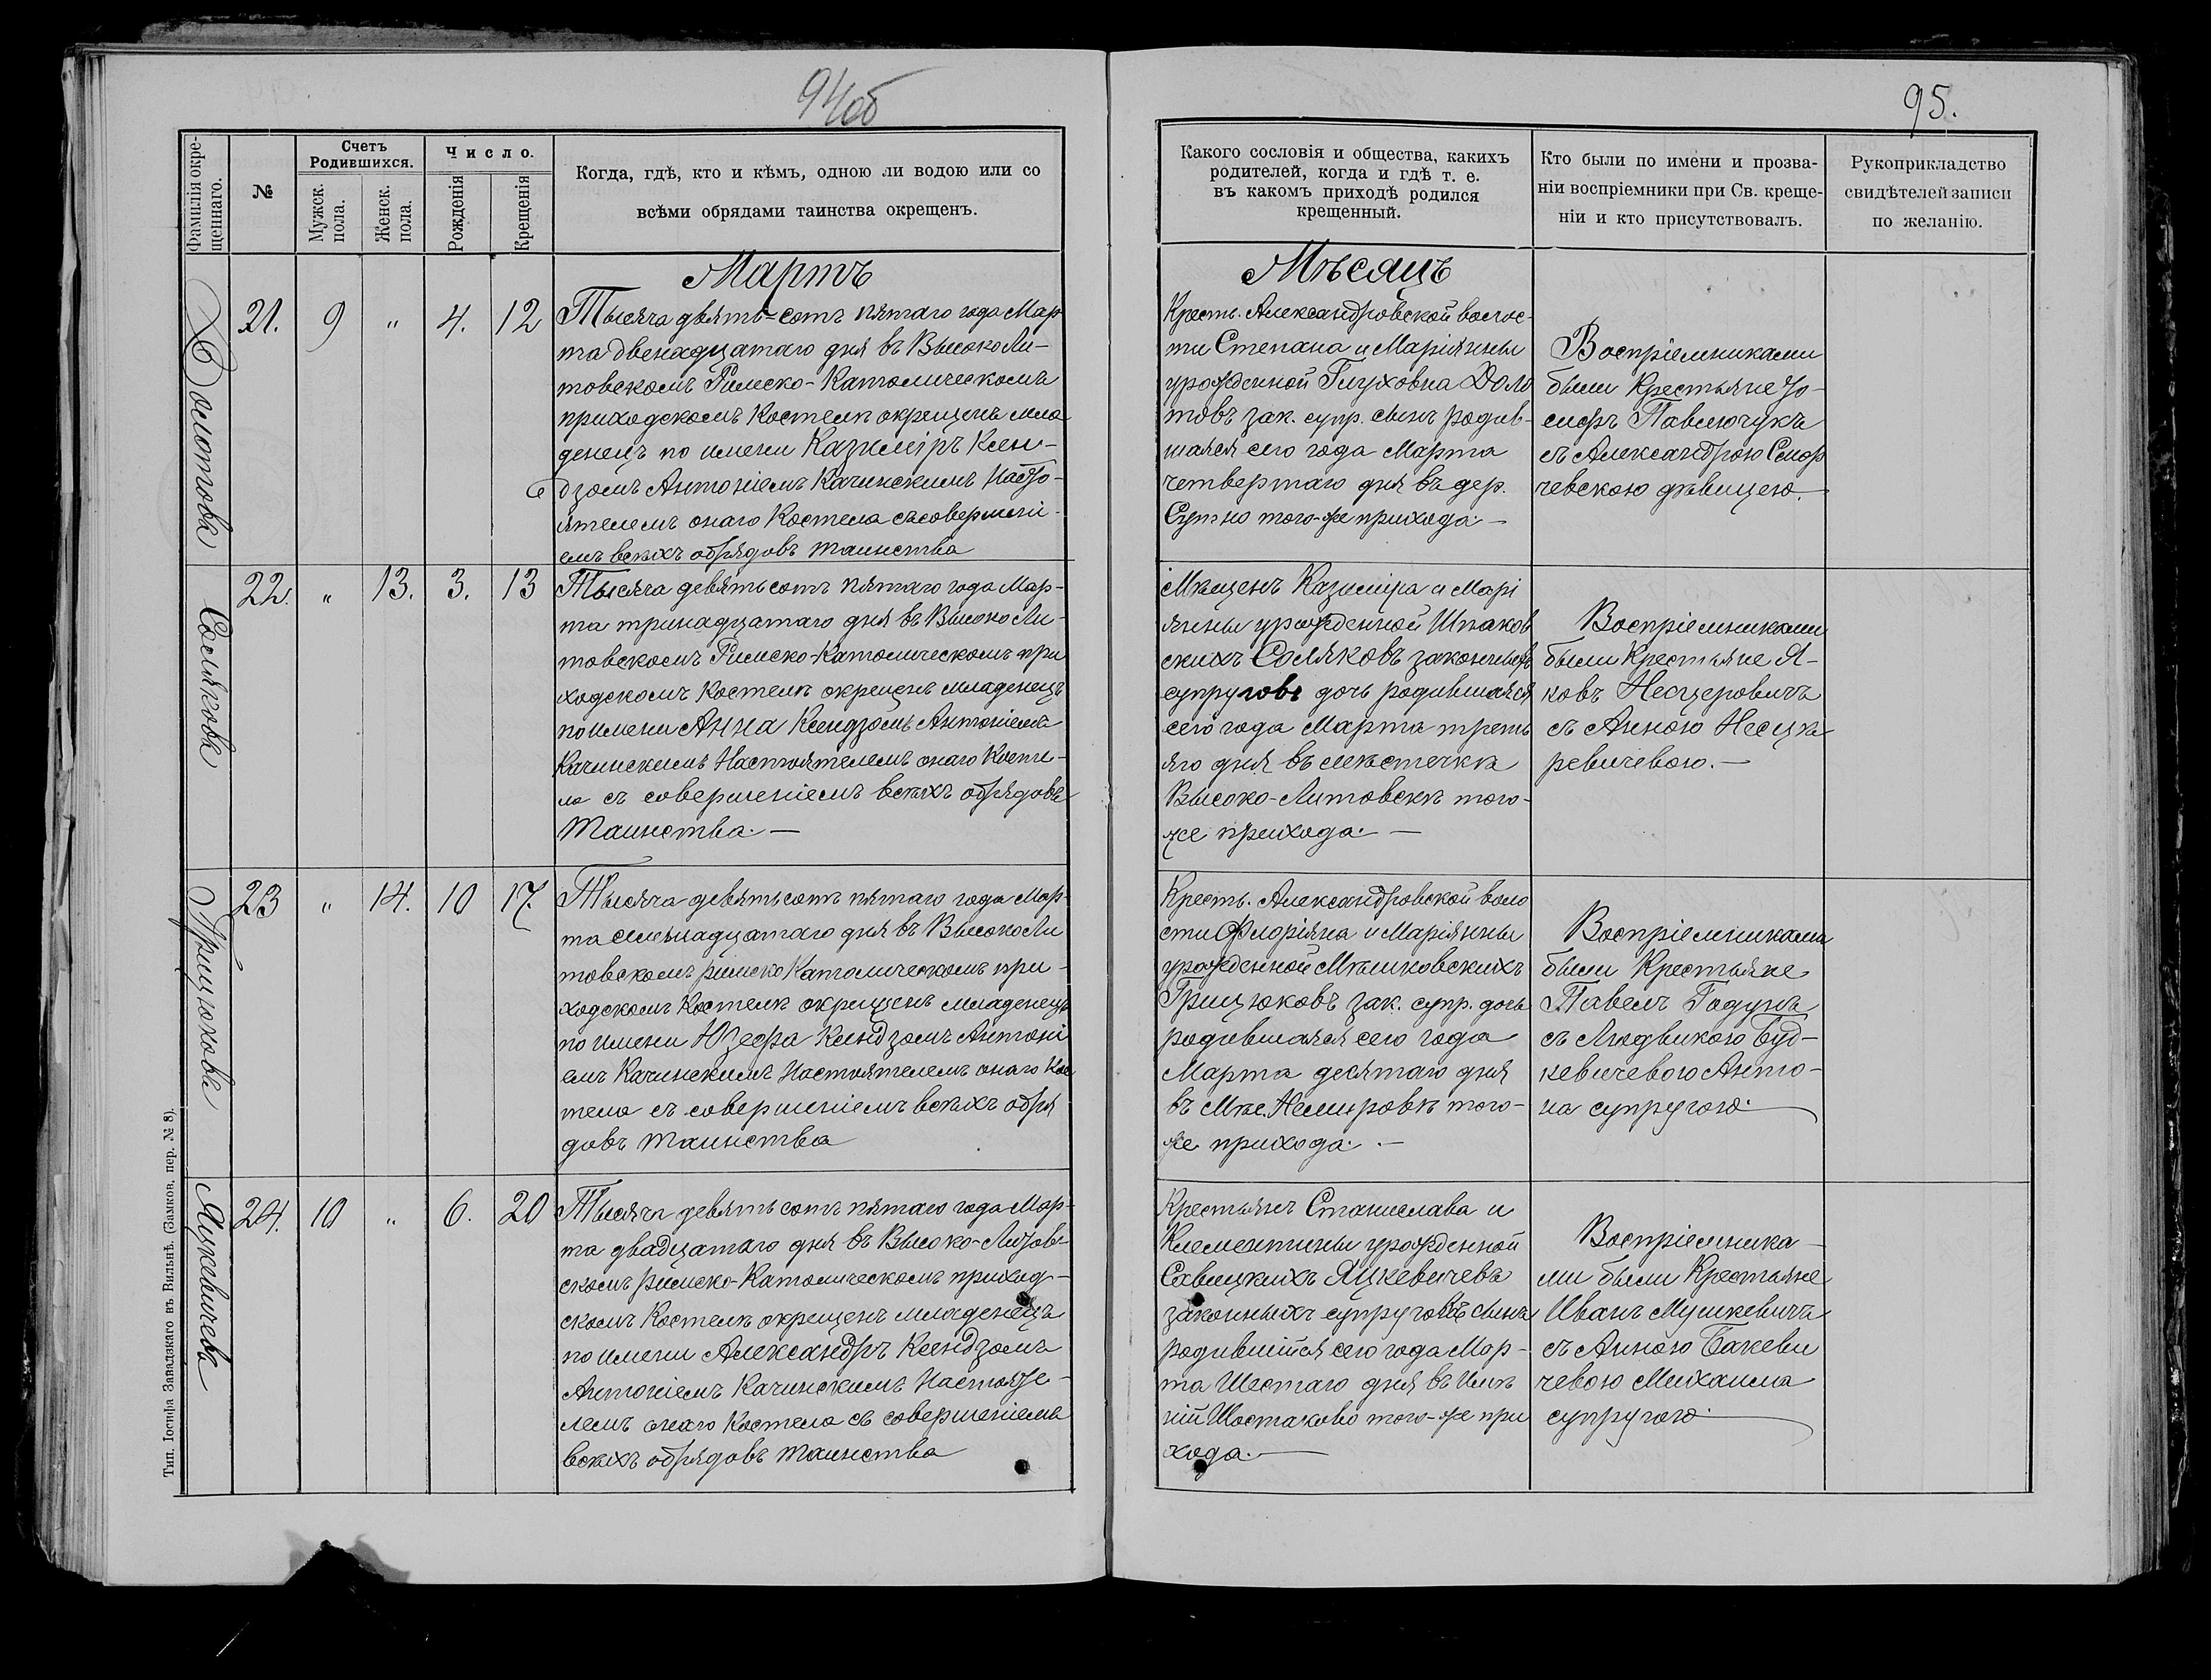 94об
95.
Фамилія окре-
щеннаго.
№
Счетъ
Родившихся.
Мужск.
пола.
Женск.
пола.
Число.
Рожденія
Крещенія
Когда, гдѣ, кто и кѣмъ, одною ли водою или со
всѣми обрядами таинства окрещенъ.
Какого сословія и общества, какихъ
родителей, когда и гдѣ т. е.
въ какомъ приходѣ родился
крещенный.
Кто были по имени и прозва-
ніи воспріемники при Св. креще-
ніи и кто присутствовалъ.
Рукоприкладство
свидѣтелей записи
по желанію.
Мартъ
Мѣсяцъ
Долотовъ
21.
9
"
4.
12
Тысяча девять-сотъ пятаго года Мар
та двенадцатаго дня въ Высоко Ли-
товскомъ Римско-Католическомъ
приходскомъ Костелѣ окрещенъ мла
денецъ по имени Казиміръ Ксен-
дзомъ Антоніемъ Качинскимъ Насто-
ятелемъ онаго Костела съ совершені-
емъ всѣхъ обрядовъ таинства
Крестъ. Александровской волос-
ти Степана и Маріянны
урожденной Глуховна Доло
товъ зак. супр. сынъ родив-
шаяся сего года Марта
четвертаго дня въ дер.
того-же прихода. —
Воспріемниками
были Крестьяне Іо-
сифъ Павлючукъ
съ Александрою Смор
чевскою дѣвицею. —
Соляковъ
22.
"
13.
3.
13
Тысяча девятьсотъ пятаго года Мар-
та тринадцатаго дня въ Высоко Ли-
товскомъ Римско-Католическомъ при
ходскомъ Костелѣ окрещенъ младенецъ
по имени Анна Ксендзомъ Антоніемъ
Качинскимъ Настоятелемъ онаго Косте-
ла съ совершеніемъ всѣхъ обрядовъ
Таинства. —
Мѣщенъ Казиміра и Марі
янны урожденной Шпаков
скихъ Соляковъ законныхъ
супруговъ дочь родившаяся
сего года Марта треть
яго дня въ мѣстечкѣ
Высоко-Литовскѣ того-
же прихода. —
Воспріемниками
были Крестьяне Я-
ковъ Несцеровичъ
съ Анною Несце
ревичевою. —
Грицюковъ
23
"
14.
10
17.
Тысяча девятьсотъ пятаго года Мар-
та семьнадцатаго дня въ Высоко Ли
товскомъ римско Католическомъ при-
ходскомъ Костелѣ окрещенъ младенецъ
по имени Юзефа Ксендзомъ Антоні
емъ Качинскимъ Настоятелемъ онаго Кос
тела съ совершеніемъ всѣхъ обря
довъ таинства
Крестъ. Александровской воло
сти Флоріяна и Маріянны
урожденной Мѣшковскихъ
Грицюковъ зак. супр. дочь
родившаяся сего года
Марта десятаго дня
въ Мѣс. Немировѣ того-
же прихода. —
Воспріемниками
были Крестьяне
Павелъ Годунъ
съ Людвикою Буд-
кевичевою Анто-
на супругою.
Яцкевичевъ
24.
10
"
6.
20
Тысяча девятьсотъ пятаго года Мар-
та двадцатаго дня въ Высоко-Литов-
скомъ римско-Католическомъ приход-
скомъ Костелѣ окрещенъ младенецъ
по имени Александръ Ксендзомъ
Антоніемъ Качинскимъ Настояте-
лемъ онаго Костела съ совершеніемъ
всѣхъ обрядовъ таинства
Крестьянъ Станислава и
Клементины урожденной
Савицкихъ Яцкевичевъ
законныхъ супруговъ сынъ
родившійся сего года Мар-
та Шестаго дня въ Имѣ
ніи Шостаково того-же при
хода. —
Воспріемника-
ми были Крестьяне
Иванъ Мушкевичъ
съ Анною Бакеви
чевою Михаила
супругою.
Тип. Іосифа Завадзкаго въ Вильнѣ. (Замков. пер. № 8).